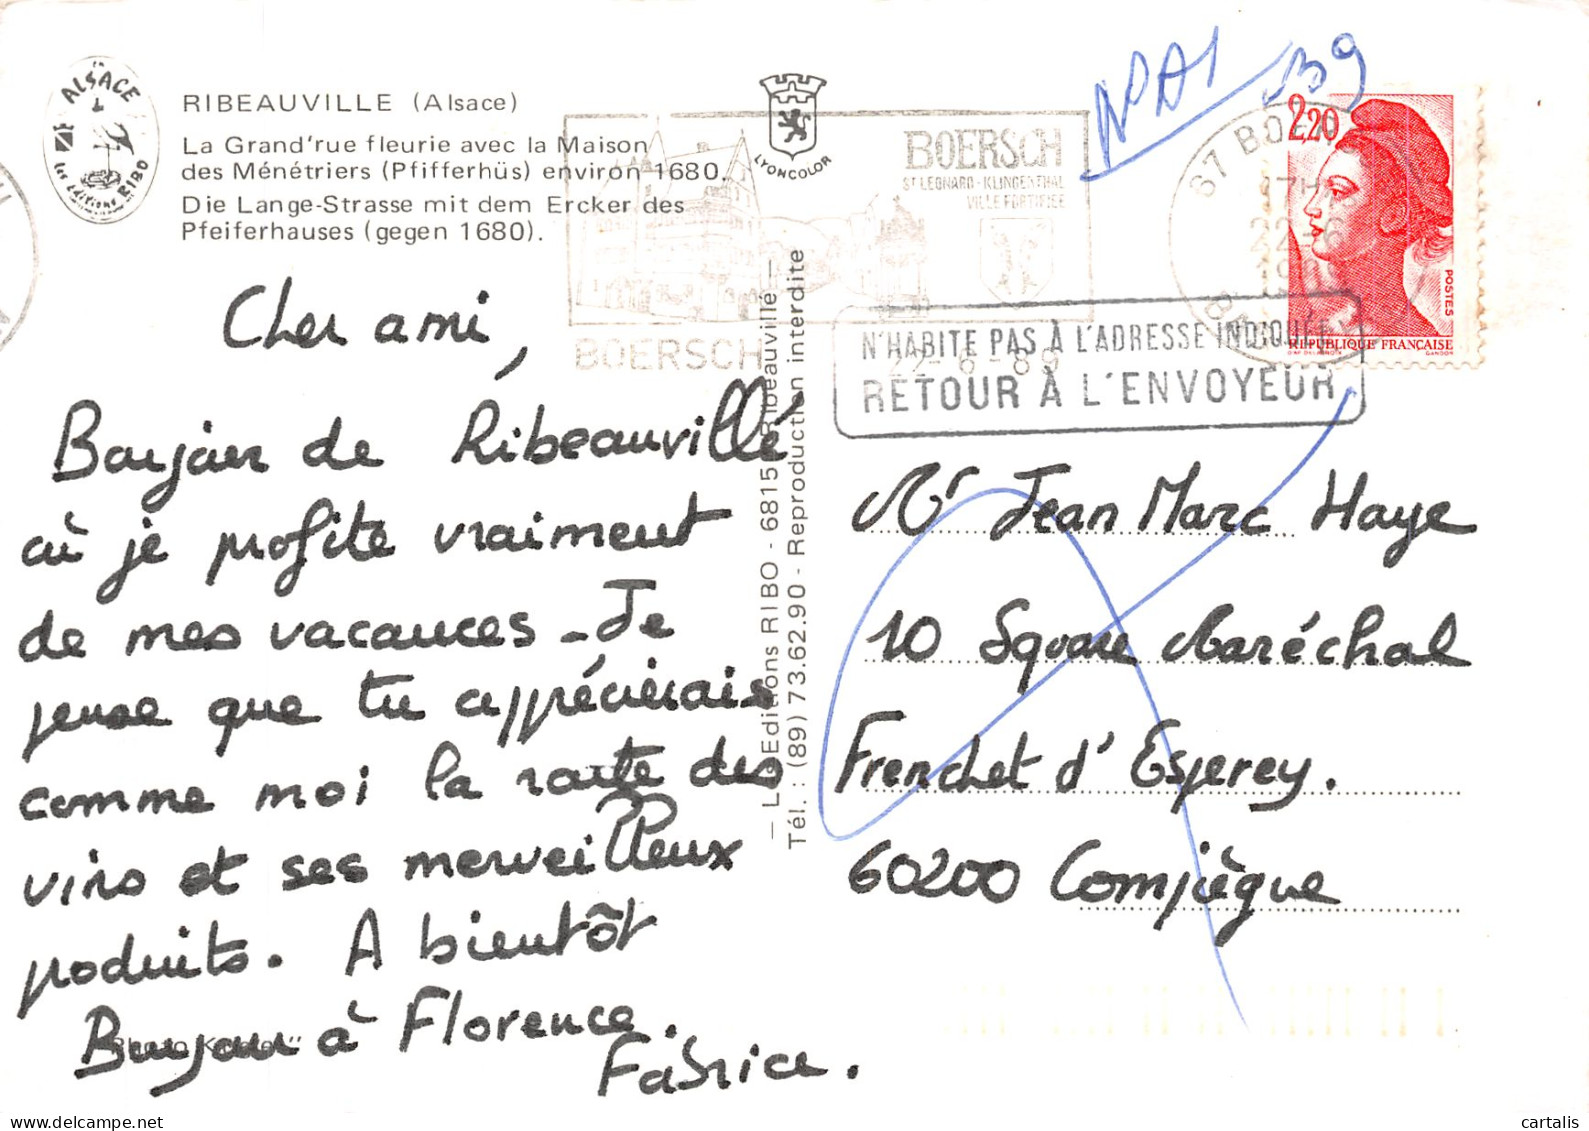 en
ALSACE
Les éditions RIBO
RIBEAUVILLE (Alsace)
La Grand'rue fleurie avec la Maison
des Ménétriers (Pfifferhüs) environ 1680.
Die Lange-Strasse mit dem Ercker des
Pfeiferhauses (gegen 1680).
LYONCOLOR
BOERSCH
ST LEONARD - KLINGENTHAL
VILLE FORTIFIEE
BOERSCH
22-6-89
67 BOE
17H
22-6
19
BAS
2,20
POSTES
REPUBLIQUE FRANÇAISE
D'AP DELACROIX GANDON
N'HABITE PAS À L'ADRESSE INDIQUÉE
RETOUR À L'ENVOYEUR
Cher ami,
Bonjour de Ribeauvillé
où je profite vraiment
de mes vacances - Je
pense que tu apprécierais
comme moi la route des
vins et ses merveilleux
produits. A bientôt
Bonjour à Florence.
Fabrice.
— Les Editions RIBO - 6815 Ribeauvillé —
Tél. : (89) 73.62.90 - Reproduction interdite
Mr Jean Marc Haye
10 Square Maréchal
Frenchet d'Esperey.
60200 Compiègne
cartalis